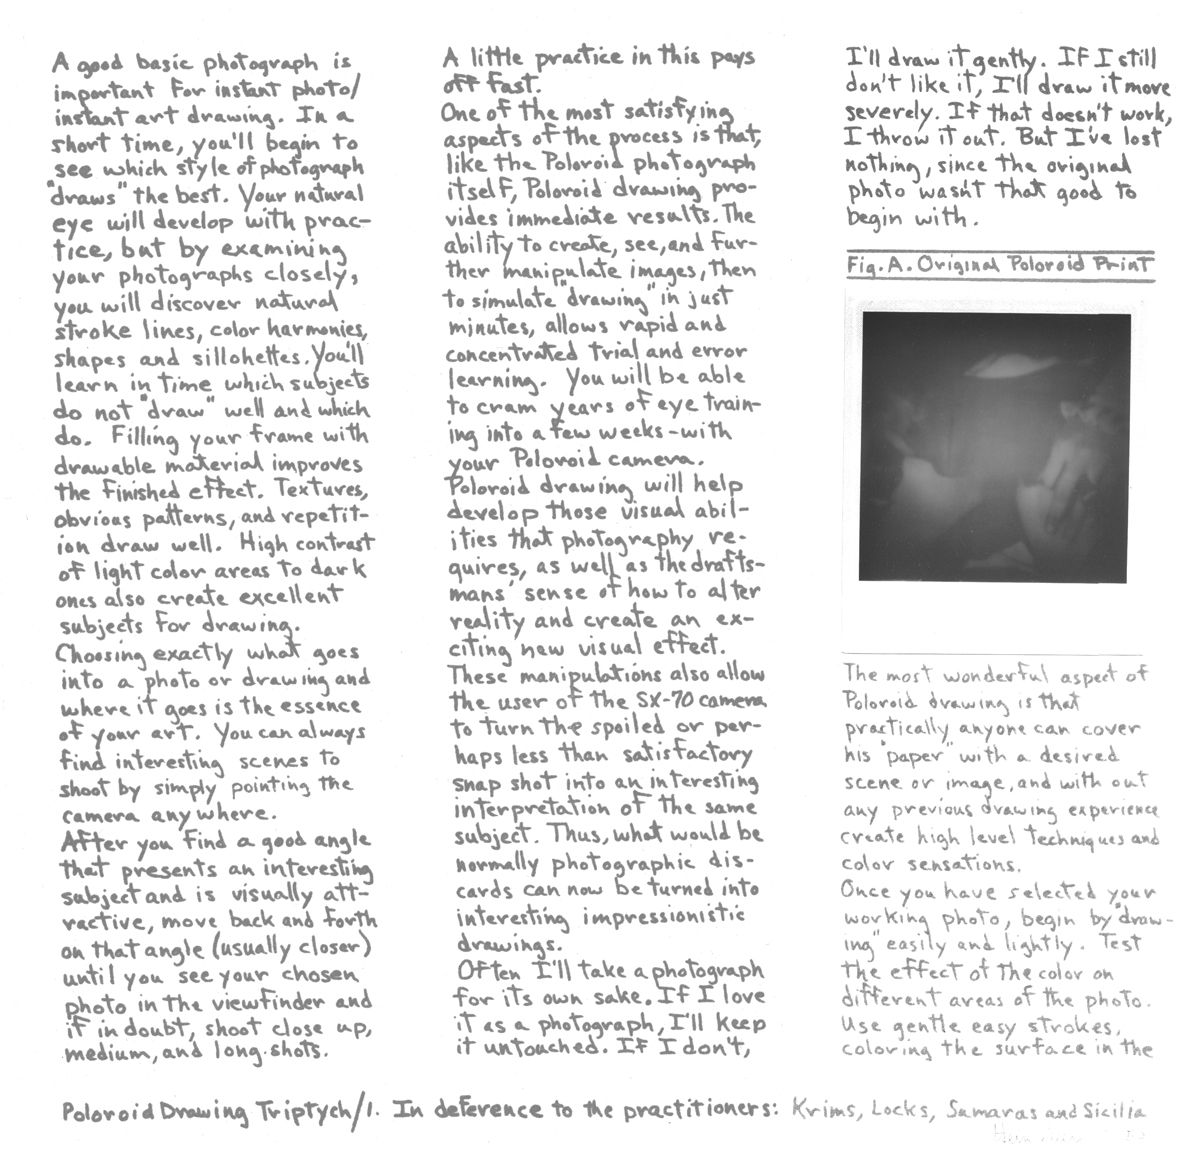 A good basic photograph is
important for instant photo/
instant art drawing. In a
short time, you'll begin to
see which style of photograph
"draws" the best. Your natural
eye will develop with prac-
tice, but by examining
your photographs closely,
you will discover natural
stroke lines, color harmonies,
shapes and sillohettes. You'll
learn in time which subjects
do not "draw" well and which
do. Filling your frame with
drawable material improves
the finished effect. Textures,
obvious patterns, and repetit-
ion draw well. High contrast
of light color areas to dark
ones also create excellent
subjects for drawing.
Choosing exactly what goes
into a photo or drawing and
where it goes is the essence
of your art. You can always
find interesting scenes to
shoot by simply pointing the
camera anywhere.
After you find a good angle
that presents an interesting
subject and is visually att-
ractive, move back and forth
on that angle (usually closer)
until you see your chosen
photo in the viewfinder and
if in doubt, shoot close up,
medium, and long shots.
A little practice in this pays
off fast.
One of the most satisfying
aspects of the process is that,
like the Poloroid photograph
itself, Poloroid drawing pro-
vides immediate results. The
ability to create, see, and fur-
ther manipulate images, then
to simulate "drawing" in just
minutes, allows rapid and
concentrated trial and error
learning. You will be able
to cram years of eye train-
ing into a few weeks-with
your Poloroid camera.
Poloroid drawing will help
develop those visual abil-
ities that photography re-
quires, as well as the drafts-
mans' sense of how to alter
reality and create an ex-
citing new visual effect.
These manipulations also allow
the user of the SX-70 camera
to turn the spoiled or per-
haps less than satisfactory
snap shot into an interesting
interpretation of the same
subject. Thus, what would be
normally photographic dis-
cards can now be turned into
interesting impressionistic
drawings.
Often I'll take a photograph
for its own sake. If I love
it as a photograph, I'll keep
it untouched. If I don't,
I'll draw it gently. If I still
don't like it, I'll draw it more
severely. If that doesn't work,
I throw it out. But I've lost
nothing, since the original
photo wasn't that good to
begin with.
Fig. A. Original Poloroid Print
The most wonderful aspect of
Poloroid drawing is that
practically anyone can cover
his "paper" with a desired
scene or image, and with out
any previous drawing experience
create high level techniques and
color sensations.
Once you have selected your
working photo, begin by "draw-
ing" easily and lightly. Test
the effect of the color on
different areas of the photo.
Use gentle easy strokes,
coloring the surface in the
Poloroid Drawing Triptych/1. In deference to the practitioners: Krims, Locks, Samaras and Sicilia